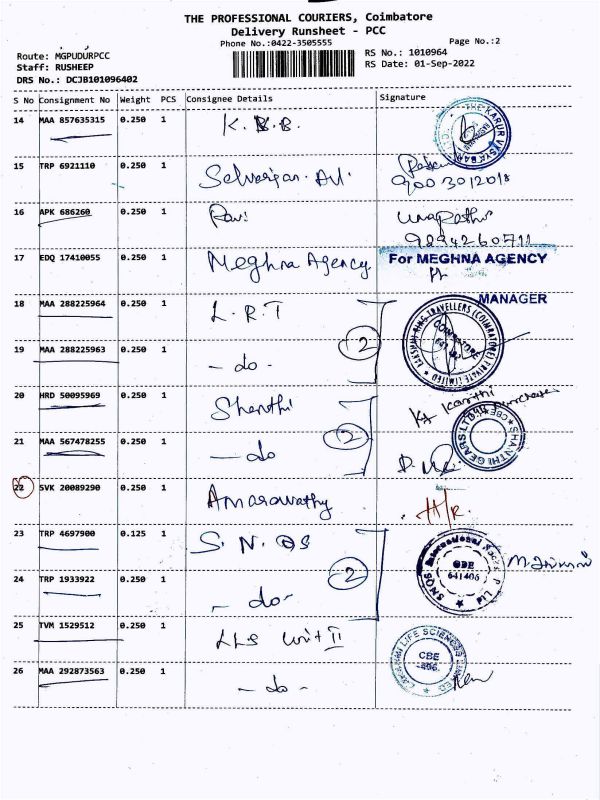 THE PROFESSIONAL COURIERS, Coimbatore
Delivery Runsheet - PCC
Phone No.:0422-3505555
Page No.:2
Route: MGPUDURPCC
RS No.: 1010964
Staff: RUSHEEP
RS Date: 01-Sep-2022
DRS No.: DCJB101096402
S No Consignment No Weight PCS Consignee Details Signature
14 MAA 857635315 0.250 1 K.B.B. THE KARUR VYSYA BANK
15 TRP 6921110 0.250 1
9003012018
16 APK 686260 0.250 1 Ravi
9894260711
17 EDQ 17410055 0.250 1 Meghna Agency For MEGHNA AGENCY
MANAGER
18 MAA 288225964 0.250 1 L.R.T
19 MAA 288225963 0.250 1 - do. 2 LAKSHMI RING TRAVELLERS (COIMBATORE) PRIVATE LIMITED
20 HRD 50095969 0.250 1 Shanthi
21 MAA 567478255 0.250 1 - do 2 SHANTHI GEARS LTD CBE
22 SVK 20089290 0.250 1 Amaravathy H/R.
23 TRP 4697900 0.125 1 S.N.QS
24 TRP 1933922 0.250 1 - do- 2 SNQS International Socks P. Ltd CBE 641406
25 TVM 1529512 0.250 1 LLS Unit II
26 MAA 292873563 0.250 1 - do - LAKSHMI LIFE SCIENCES LIMITED CBE